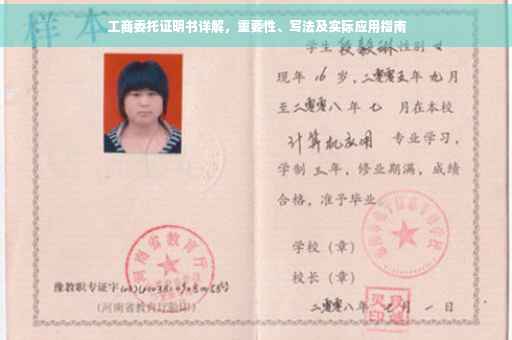 工商委托证明书详解，重要性、写法及实际应用指南
样本
学生 段毅琳 性别 女
现年 16 岁，二零零五年 九 月
至二零零八年 七 月在本校
计算机应用 专业学习，
学制 三 年，修业期满，成绩
合格，准予毕业
学校（章）
校长（章）
二零零八年 七 月 一 日
河南省教育厅
豫教职专证字
（河南省教育厅验印）